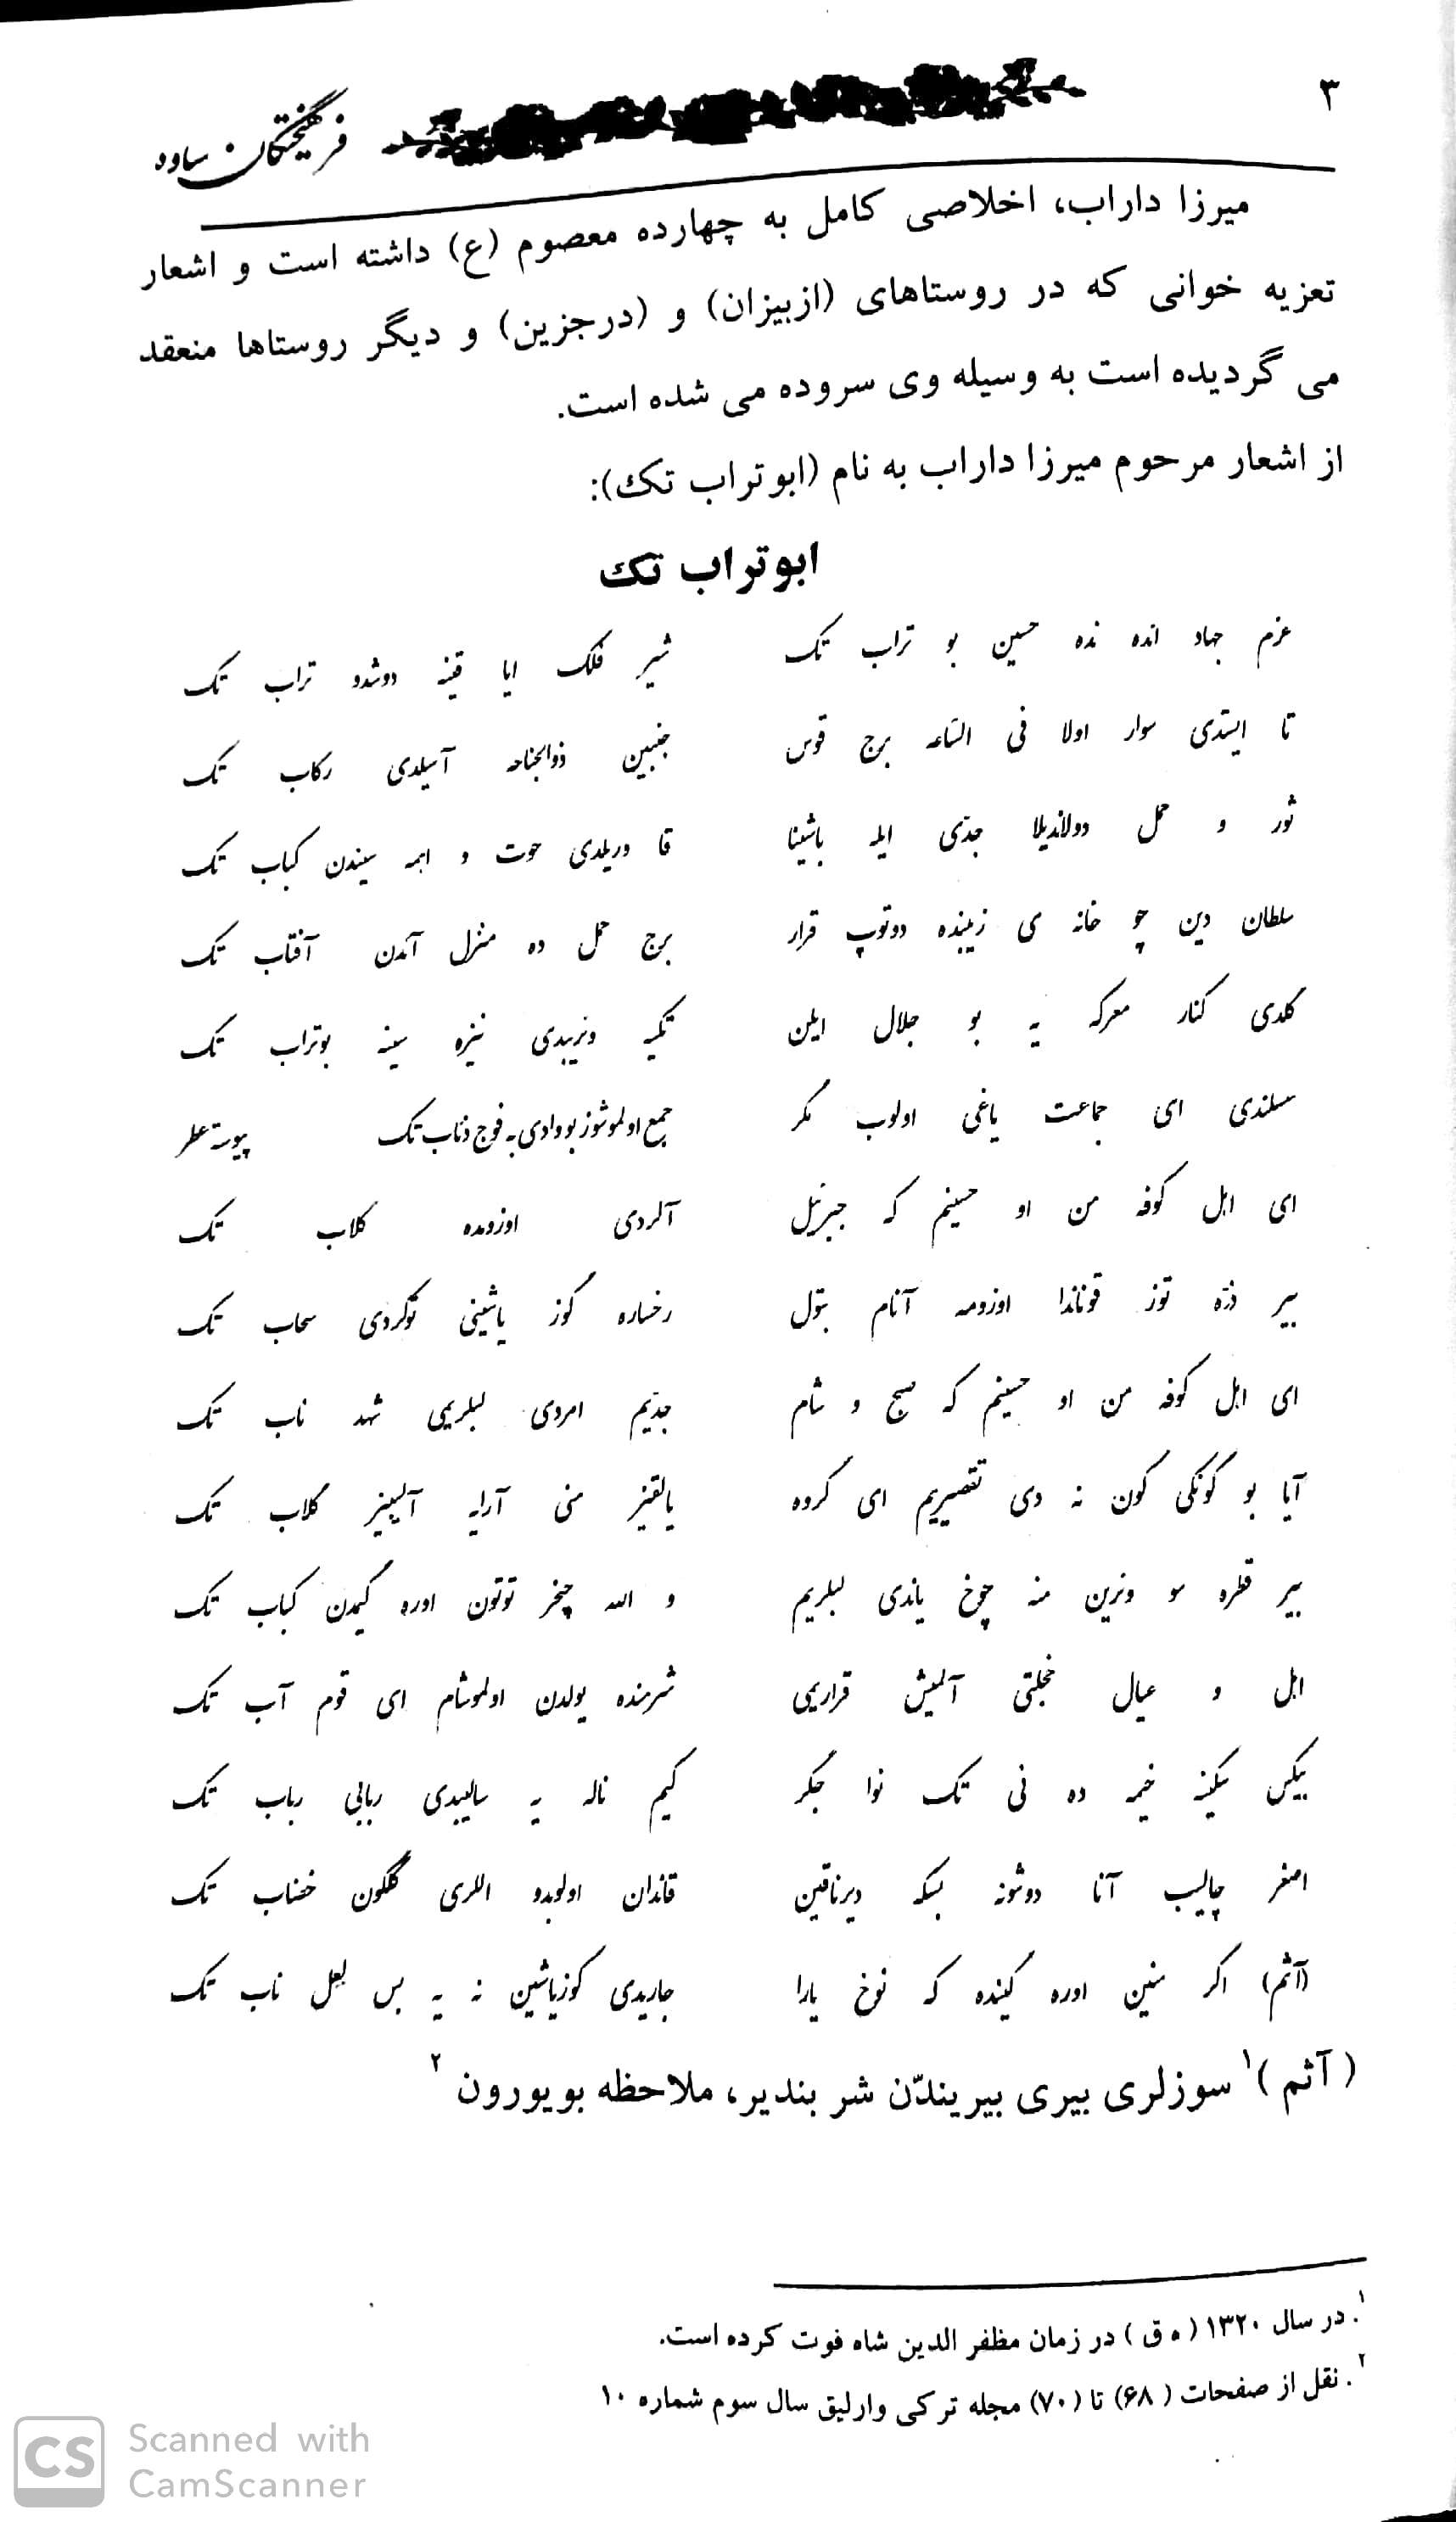 ۳
فرهیختگان ساوه
میرزا داراب، اخلاصی کامل به چهارده معصوم (ع) داشته است و اشعار
تعزیه خوانی که در روستاهای (ازبیزان) و (درجزین) و دیگر روستاها منعقد
می گردیده است به وسیله وی سروده می شده است.
از اشعار مرحوم میرزا داراب به نام (ابوتراب تک):
ابوتراب تک
عزم جهاد انده نده حسین بو تراب تک شیر فلک ایا قینه دوشدو تراب تک
تا ایستدی سوار اولا فی الساعه برج قوس جنبین ذوالجناحه آسیلدی رکاب تک
ثور و حمل دولاندیلا جدی ایله باشینا قا وریلدی حوت و ایمه سیندن کباب تک
سلطان دین چو خانه ی زینده دوتوپ قرار برج حمل ده منزل آلدن آفتاب تک
گلدی کنار معرکه یه بو جلال ایلن تکیه ویریبدی نیزه سینه بوتراب تک
سسلندی ای جماعت یاغی اولوب مگر جمع اولموشوز بو وادی یه فوج ذئاب تک
ای اهل کوفه من او حسینم که جبرئیل آلردی اوزومده گلاب تک
بیر ذره توز قوناندا اوزومه آنام بتول رخساره گوز یاشینی توکردی سحاب تک
ای اهل کوفه من او حسینم که صبح و شام جدیم امردی لبلریمی شهد ناب تک
آیا بو گونکی گون نه دی تقصیریم ای گروه یالقیز منی آرایه آلیپسیز کلاب تک
بیر قطره سو ویرین منه چوخ یاندی لبلریم و الله چیخر توتون اوره گیمدن کباب تک
اهل و عیال خجلتی آلمیش قراریمی شرمنده یولدن اولموشام ای قوم آب تک
بیکس سکینه خیمه ده نی تک نوا چکر کیم ناله یه سالیبدی ربابی رباب تک
اصغر چالیب آنا دوشونه بسکه دیرناقین قاندان اولوبدو اللری گلگون خضاب تک
(آثم) اگر سنین اوره گینده که نوخ یارا جاریدی گوزیاشین نه یه بس لعل ناب تک
(آثم)۱ سوزلری بیری بیریندّن شر بندیر، ملاحظه بویورون ۲
۱. در سال ۱۳۲۰ (ه ق) در زمان مظفر الدین شاه فوت کرده است.
۲. نقل از صفحات (۶۸) تا (۷۰) مجله ترکی وارلیق سال سوم شماره ۱۰
CS Scanned with
CamScanner